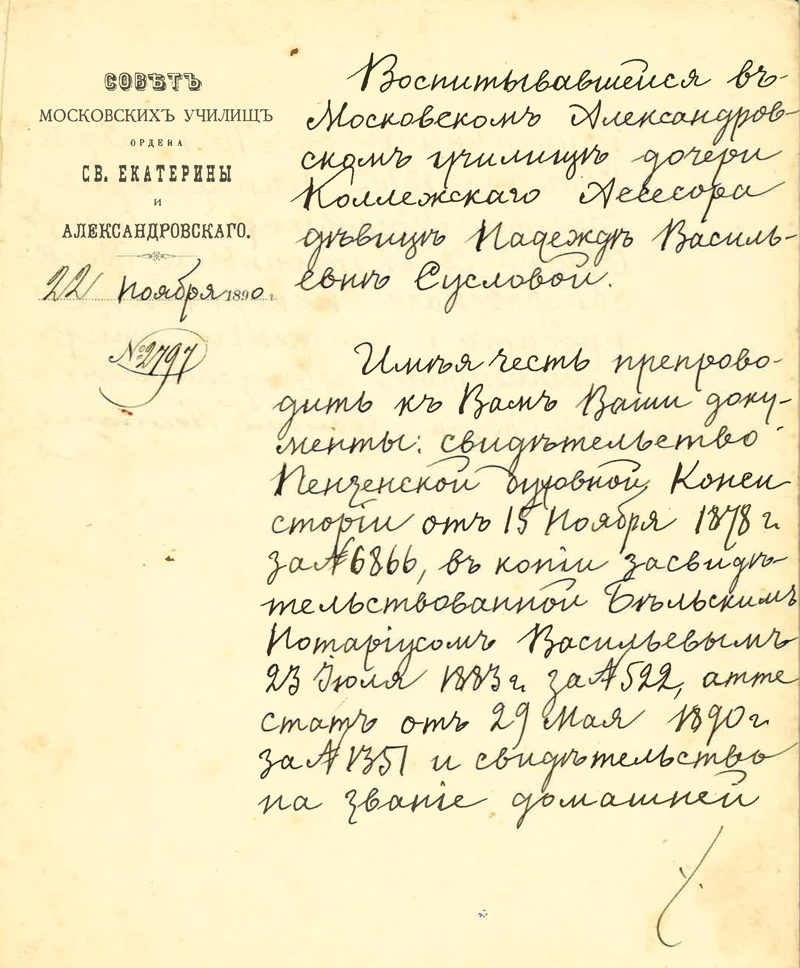 СОВѢТЪ
МОСКОВСКИХЪ УЧИЛИЩЪ
ОРДЕНА
СВ. ЕКАТЕРИНЫ
И
АЛЕКСАНДРОВСКАГО.
22 Ноября 1890 г.
№ 2797
Воспитывавшейся въ
Московскомъ Александров-
скомъ училищѣ дочери
Коллежскаго Ассесора
дѣвицѣ Надеждѣ Василь-
евнѣ Сусловой.
Имѣя честь препрово-
дить къ Вамъ Ваши доку-
менты: свидѣтельство
Пензенской духовной Конси
сторіи отъ 15 Ноября 1878 г.
за № 6866, въ копіи засвидѣ-
тельствованной Бѣльскимъ
Нотаріусомъ Васильевымъ
23 Іюля 1883 г. за № 522, атте
статъ отъ 29 Мая 1890 г.
за № 1351 и свидѣтельство
на званіе домашней